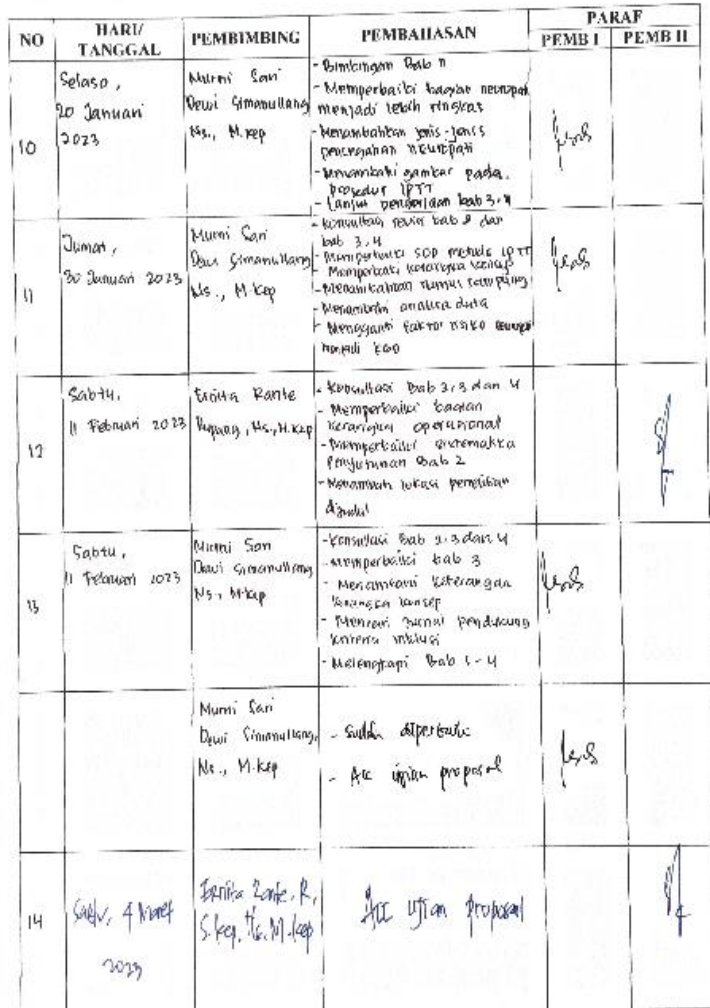 NO HARI/ TANGGAL PEMBIMBING PEMBAHASAN PARAF
PEMB I PEMB II
10
Selasa,
20 Januari
2023
Murni Sari
Dewi Simanullang
Ns., M.Kep
- Bimbingan Bab II
- Memperbaiki bagian neuropati
menjadi lebih ringkas
- Menambahkan jenis-jenis
pencegahan neuropati
- Menambahi gambar pada
prosedur IPTT
- Lanjut pengerjaan bab 3,4
11
Jumat,
30 Januari 2023
Murni Sari
Dewi Simanullang
Ns., M.Kep
- Konsultasi revisi bab 2 dan
bab 3,4
- Memperbaiki SOP metode IPTT
- Memperbaiki kerangka konsep
- Menambahkan rumus sampling
- Menambahi analisa data
- Mengganti faktor risiko
menjadi KGD
12
Sabtu,
11 Februari 2023
Ernita Rante
Rupang, Ns., M.Kep
- Konsultasi Bab 2,3 dan 4
- Memperbaiki bagian
kerangka operasional
- Memperbaiki sistematika
penyusunan Bab 2
- Menambah lokasi penelitian
dijudul
13
Sabtu,
11 Februari 2023
Murni Sari
Dewi Simanullang
Ns., M.Kep
- Konsultasi Bab 2,3 dan 4
- Memperbaiki bab 3
- Menambahi keterangan
kerangka konsep
- Mencari jurnal pendukung
kriteria inklusi
- Melengkapi Bab 1-4
Murni Sari
Dewi Simanullang,
Ns., M.Kep
- Sudah diperbaiki
- Acc ujian proposal
14
Sabtu, 4 Maret
2023
Ernita Rante. R,
S.Kep. Ns. M.Kep
Acc ujian proposal